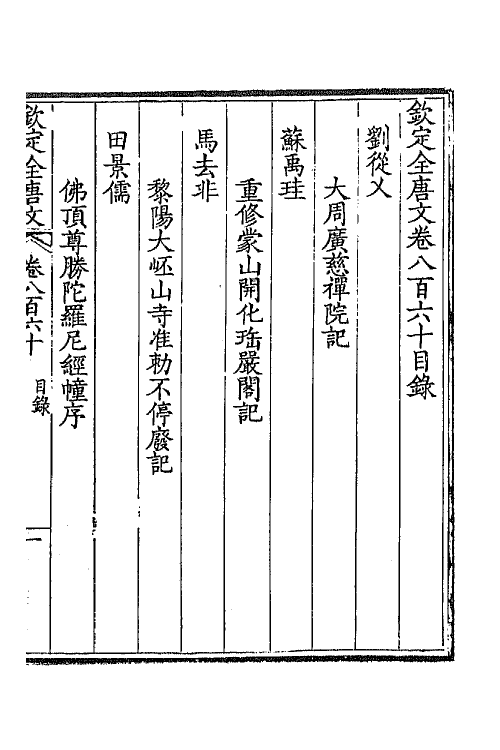 欽定全唐文卷八百六十目錄
劉從乂
大周廣慈禪院記
蘇禹珪
重修蒙山開化珤嚴閣記
馬去非
黎陽大岯山寺准勅不停廢記
田景儒
佛頂尊勝陀羅尼經幢序
欽定全唐文 卷八百六十 目錄 一